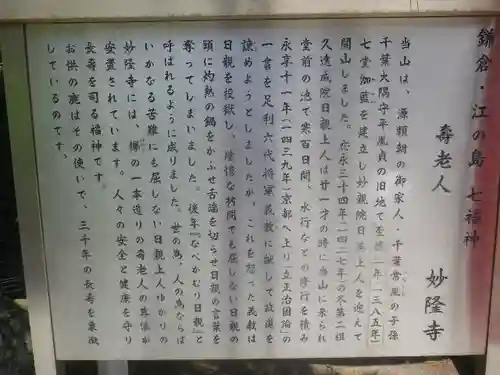 鎌倉・江の島 七福神
寿老人 妙隆寺
当山は、源頼朝の御家人・千葉常胤の子孫
千葉大隅守平胤貞の旧地で至徳二年(一三八五年)
七堂伽藍を建立し妙親院日英上人を迎えて
開山しました。応永三十四年(一四二七年)の冬第二祖
久遠成院日親上人は廿一才の時に当山に来られ
堂前の池で寒百日間、水行などの修行を積み
永享十一年(一四三九年)京都へ上り「立正治国論」の
一書を足利六代将軍義教に献じて政道を
諌めようとしましたが、これを怒った義教は
日親を投獄し、陰惨な拷問でも屈しない日親の
頭に灼熱の鍋をかぶせ舌端を切らせ日親の言葉を
奪ってしまいました。後年『なべかむり日親』と
呼ばれるように成りました。世の為・人の為ならば
いかなる苦難にも屈しない日親上人ゆかりの
妙隆寺には、欅の一本造りの寿老人の尊像が
安置されています。人々の安全と健康を守り
長寿を司る福神です。
お供の鹿はその使いで、三千年の長寿を象徴
しているのです。